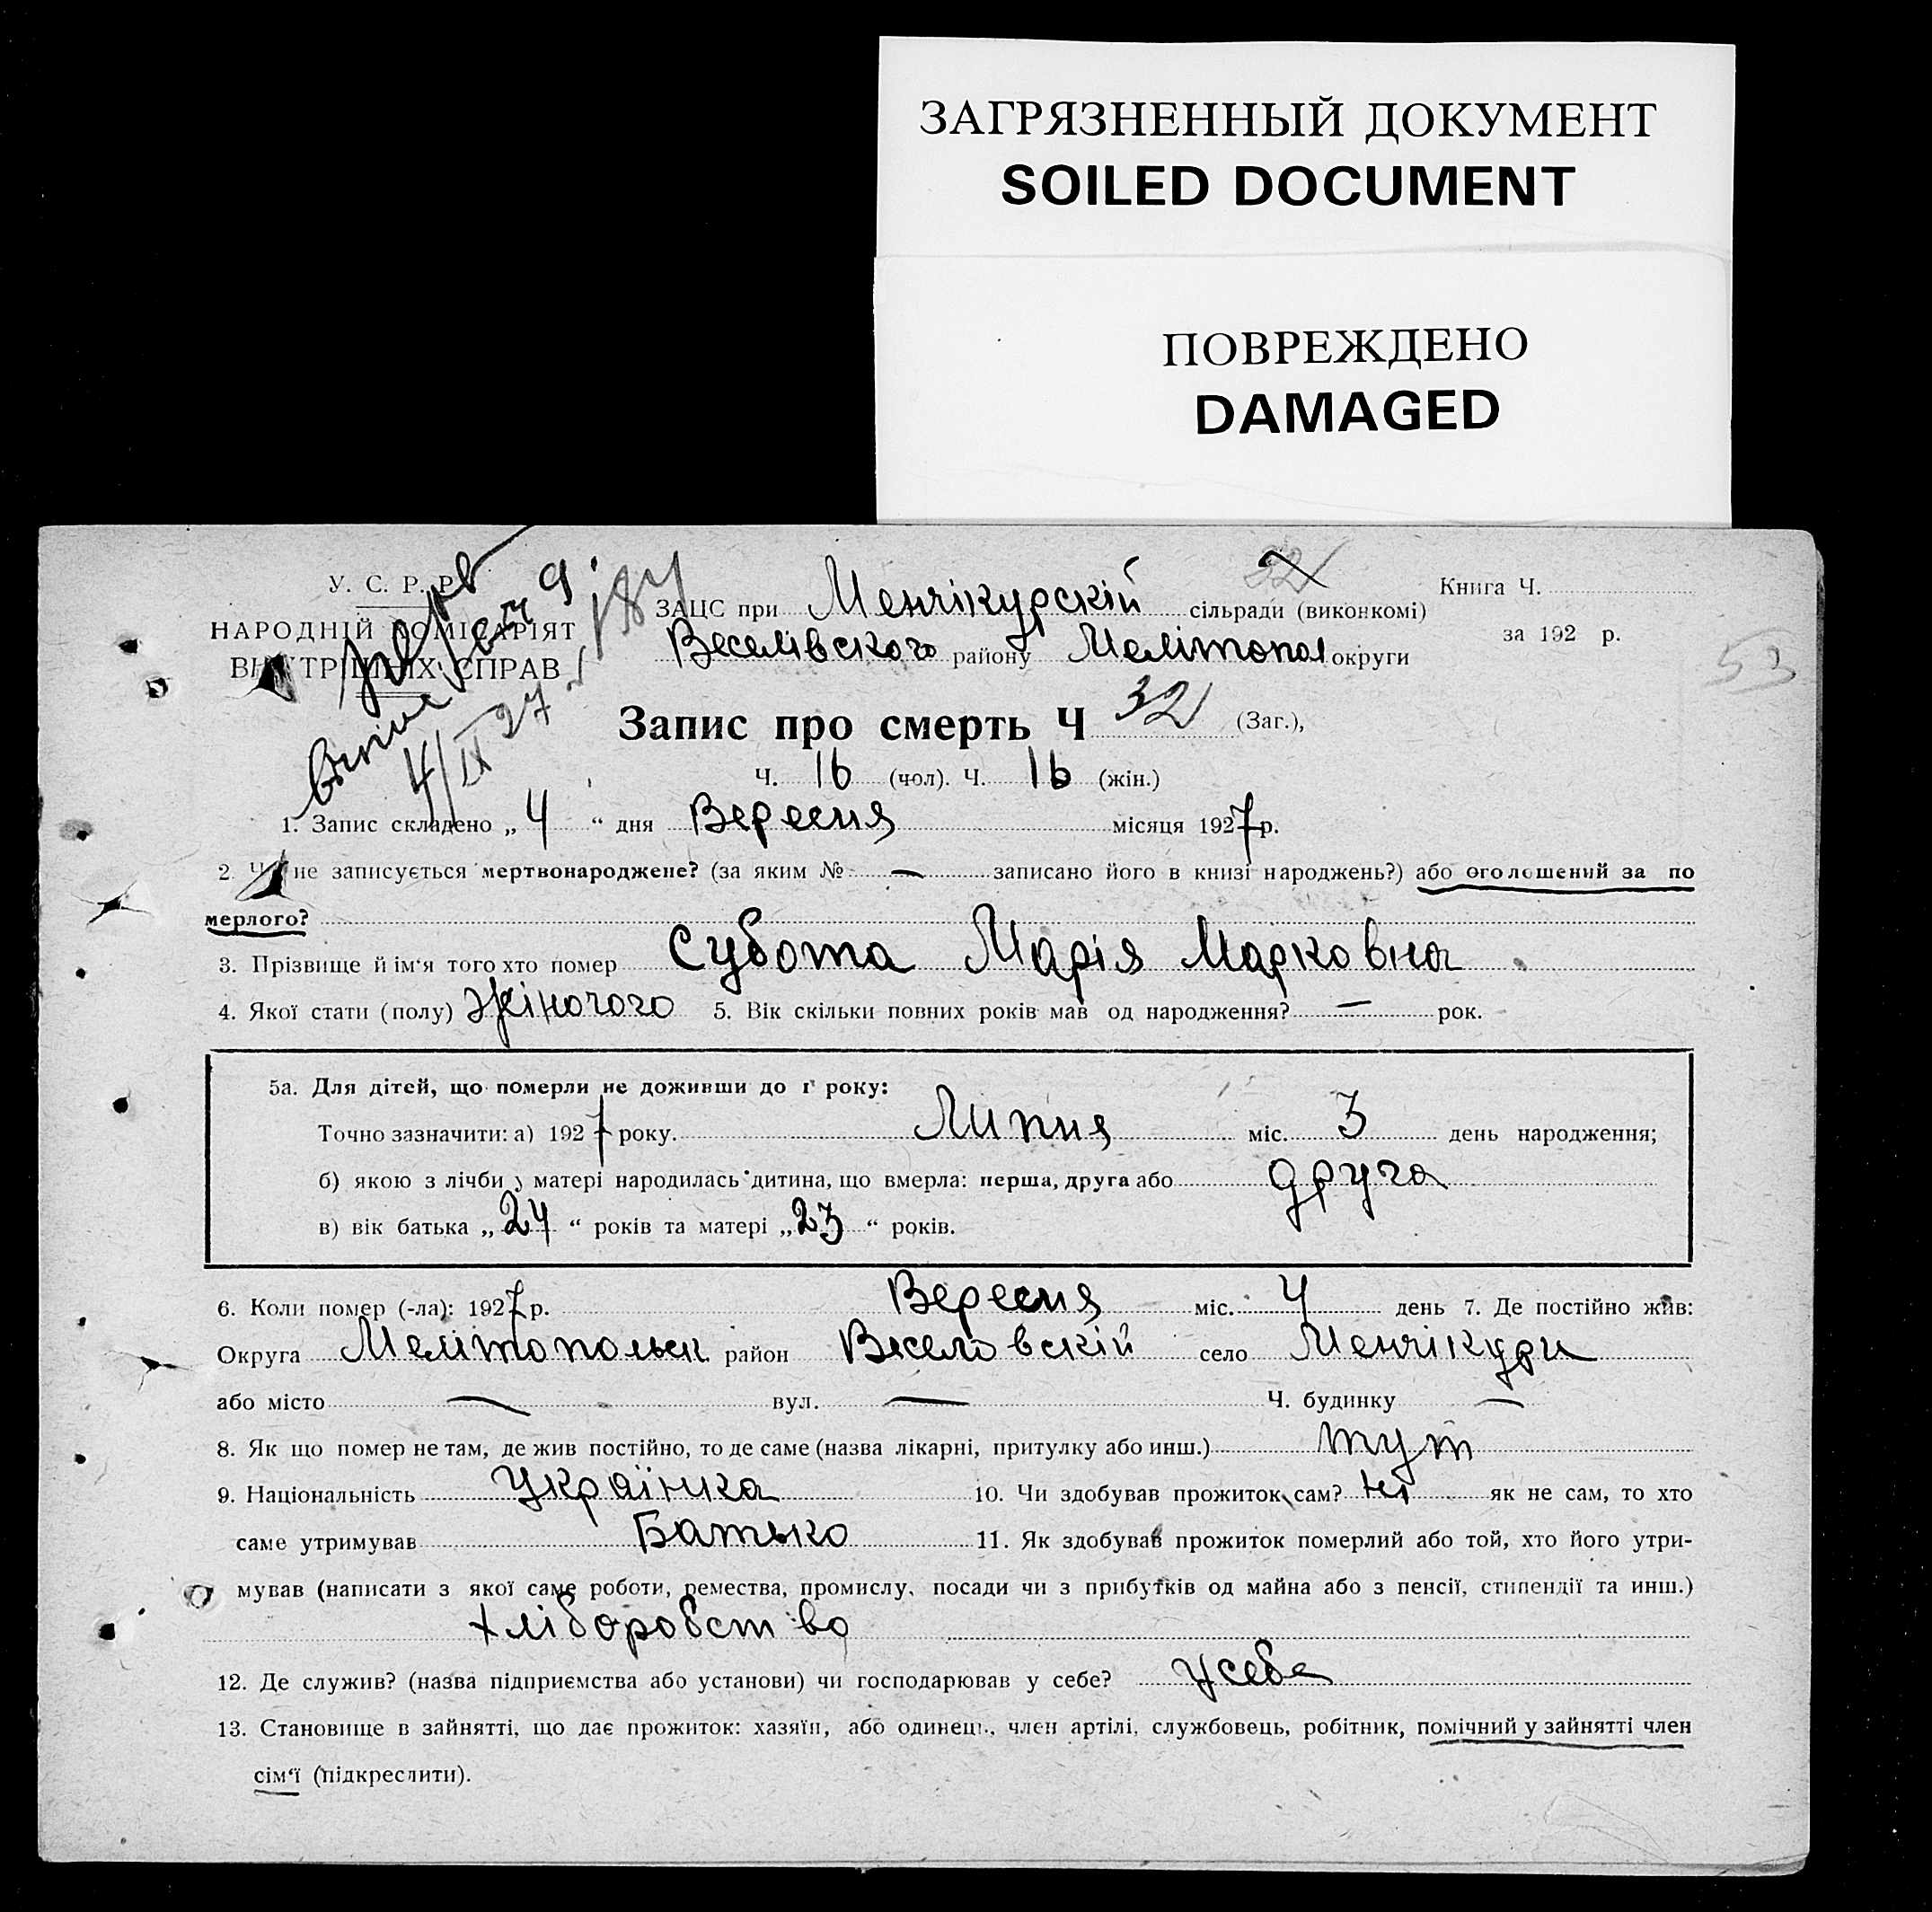 ЗАГРЯЗНЕННЫЙ ДОКУМЕНТ
SOILED DOCUMENT
ПОВРЕЖДЕНО
DAMAGED
У. С. Р. Р.
НАРОДНІЙ КОМІСАРІЯТ
ВНУТРІШНІХ СПРАВ
4/IX 27
184
32
ЗАЦС при Менчікурскій сільради (виконкомі)
Веселівского району Мелітопол округи
Книга Ч.
за 192 р.
53
Запис про смерть Ч 32 (Заг.),
Ч. 16 (чол). Ч. 16 (жін.)
1. Запис складено „ 4 “ дня Вересня місяця 1927 р.
2. Чи не записується мертвонароджене? (за яким № — записано його в книзі народжень?) або оголошений за по
мерлого?
3. Прізвище й ім‘я того хто помер Субота Марія Марковна
4. Якої стати (полу) Жіночого 5. Вік скільки повних років мав од народження? — рок.
5а. Для дітей, що померли не доживши до 1 року:
Точно зазначити: а) 1927 року. Липня міс. 3 день народження;
б) якою з лічби у матері народилась дитина, що вмерла: перша, друга або друга
в) вік батька „ 24 “ років та матері „ 23 “ років.
6. Коли помер (-ла): 1927 р. Вересня міс. 4 день 7. Де постійно жив:
Округа Мелітопольск район Веселовскій село Менчікури
або місто — вул. — Ч. будинку —
8. Як що помер не там, де жив постійно, то де саме (назва лікарні, притулку або инш.) тут
9. Національність Українка 10. Чи здобував прожиток сам? Ні як не сам, то хто
саме утримував Батько 11. Як здобував прожиток померлий або той, хто його утри-
мував (написати з якої саме роботи, ремества, промислу, посади чи з прибутків од майна або з пенсії, стипендії та инш.)
хліборобство
12. Де служив? (назва підприємства або установи) чи господарював у себе? усебе
13. Становище в зайнятті, що дає прожиток: хазяїн, або одинець, член артілі, службовець, робітник, помічний у зайнятті член
сім‘ї (підкреслити).